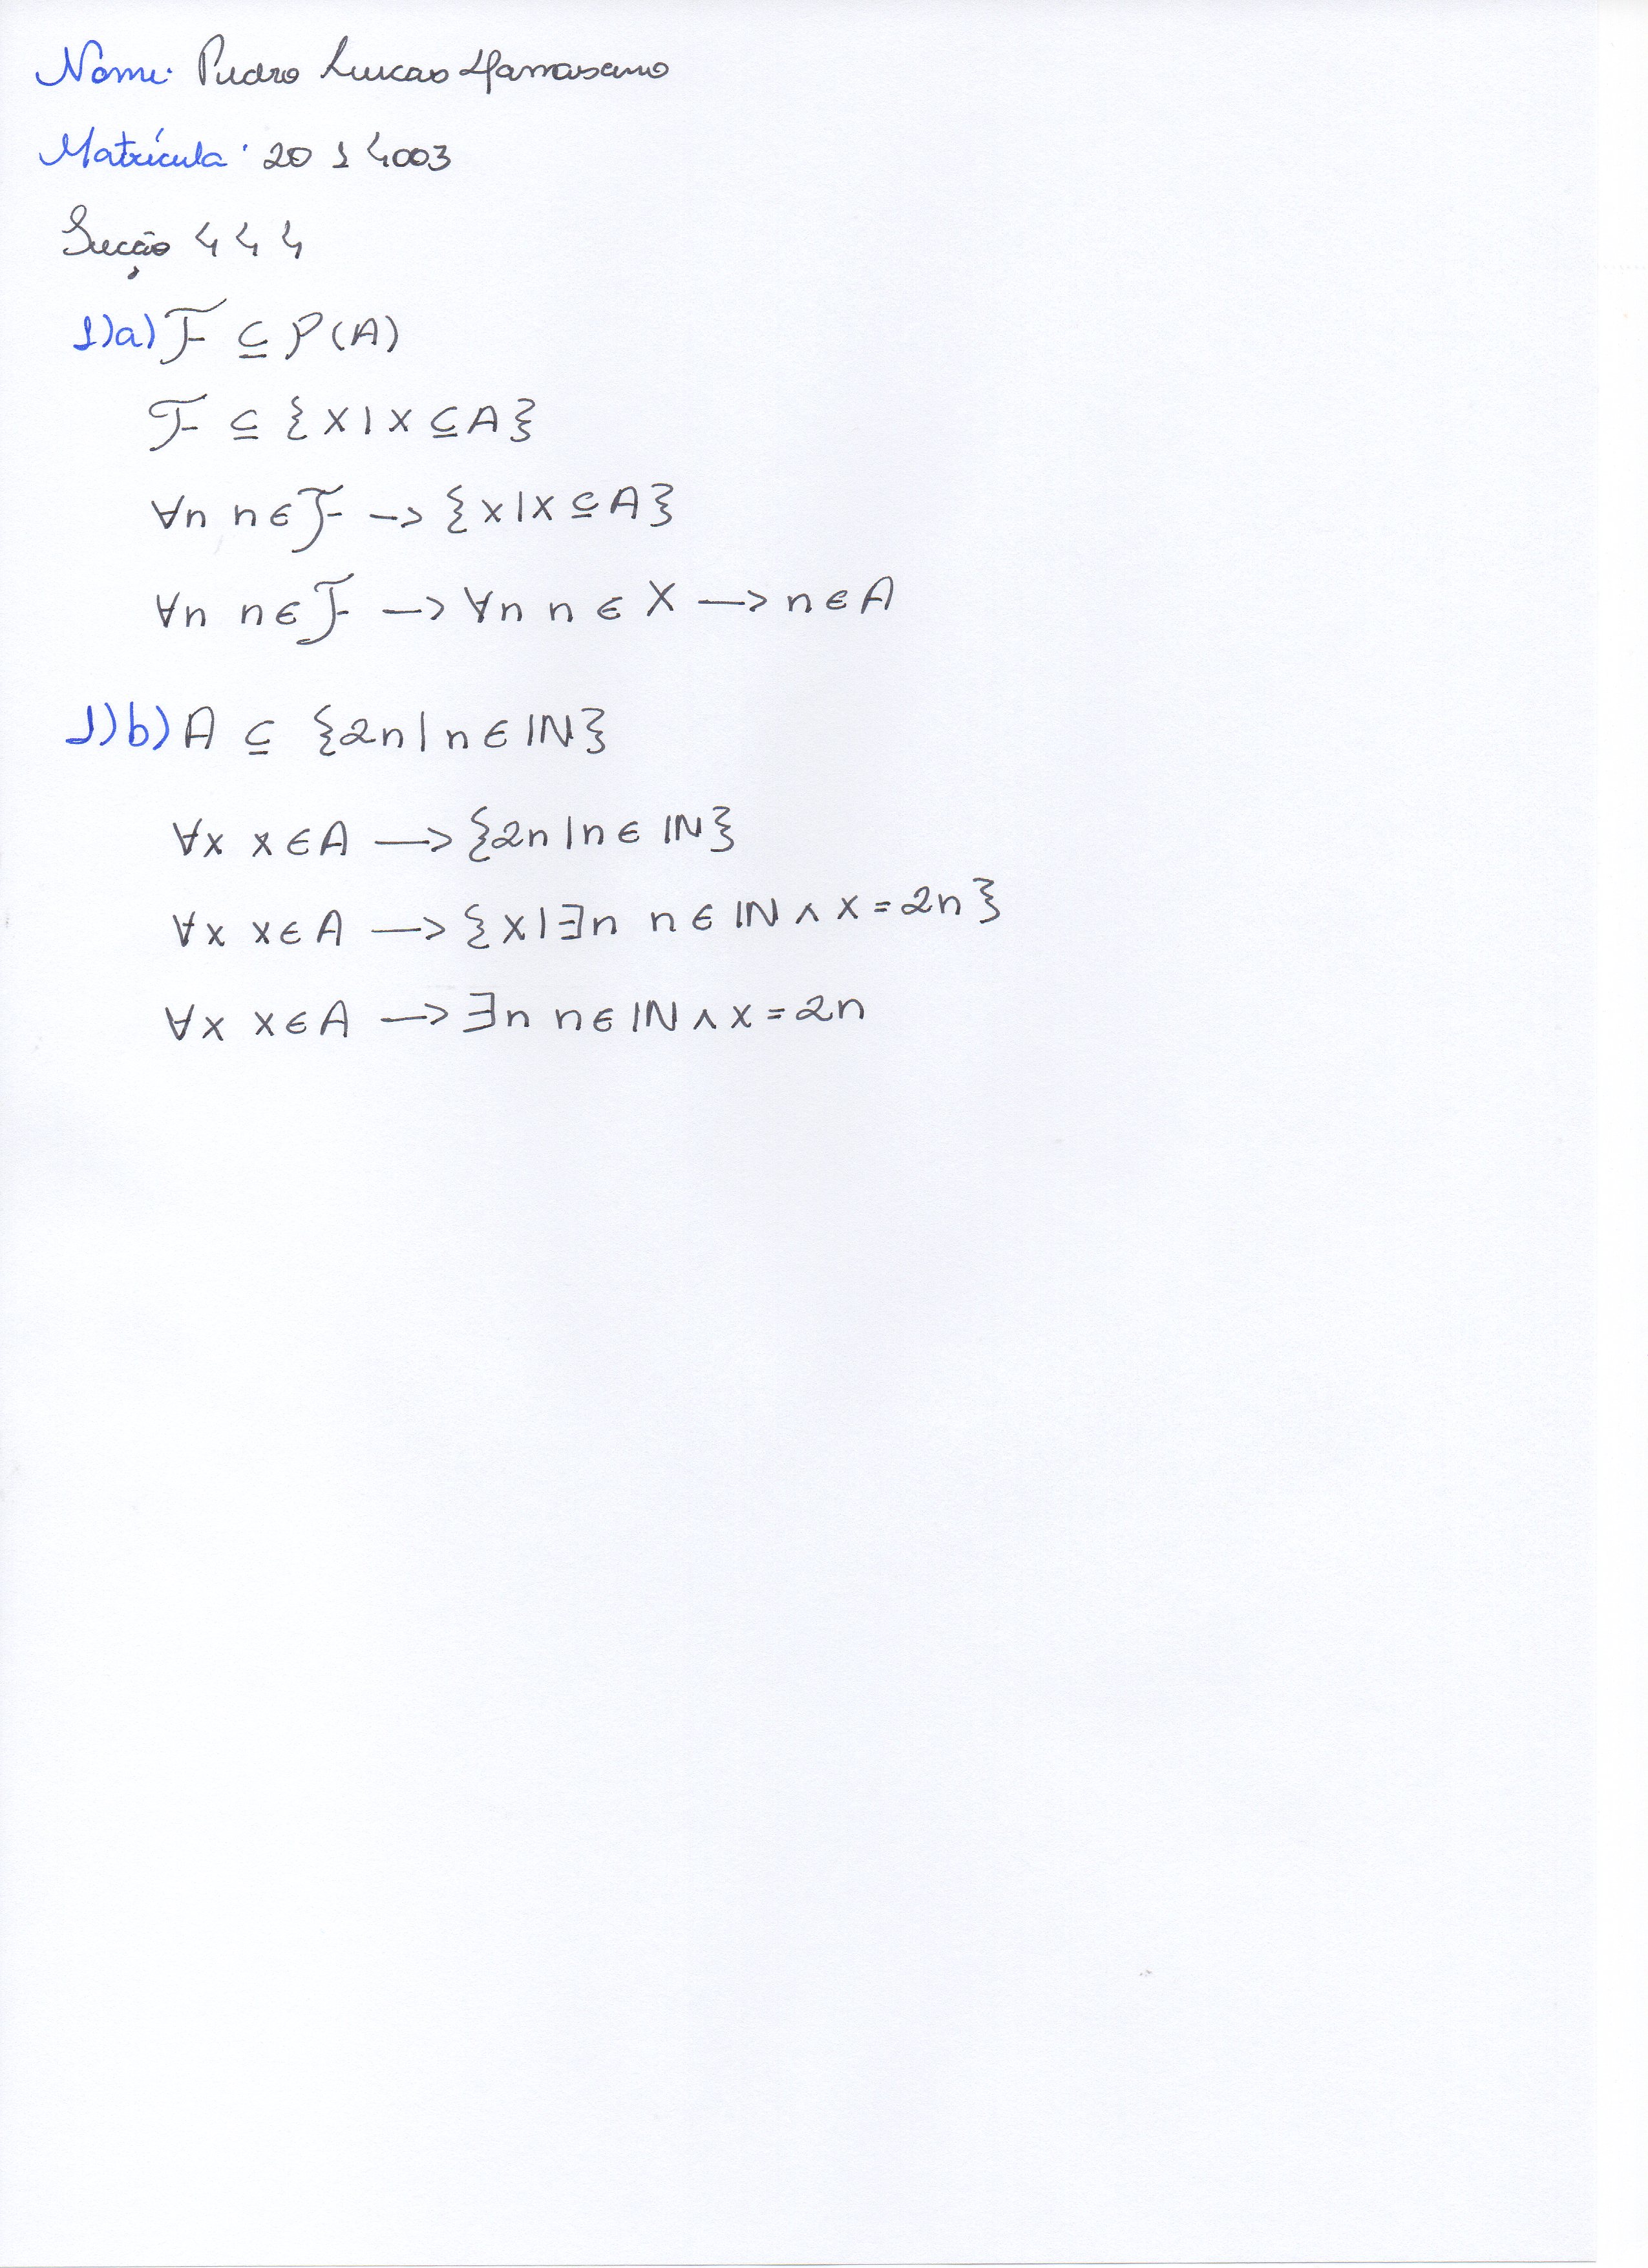 Nome: Pedro Lucas
Matrícula: 20 1 4003
Secção 4 4 4
1)a) F ⊆ P(A)
F ⊆ {X | X ⊆ A}
∀n n ∈ F -> {X | X ⊆ A}
∀n n ∈ F -> ∀n n ∈ X -> n ∈ A
1)b) A ⊆ {2n | n ∈ IN}
∀x x ∈ A -> {2n | n ∈ IN}
∀x x ∈ A -> {x | ∃n n ∈ IN ∧ x = 2n}
∀x x ∈ A -> ∃n n ∈ IN ∧ x = 2n